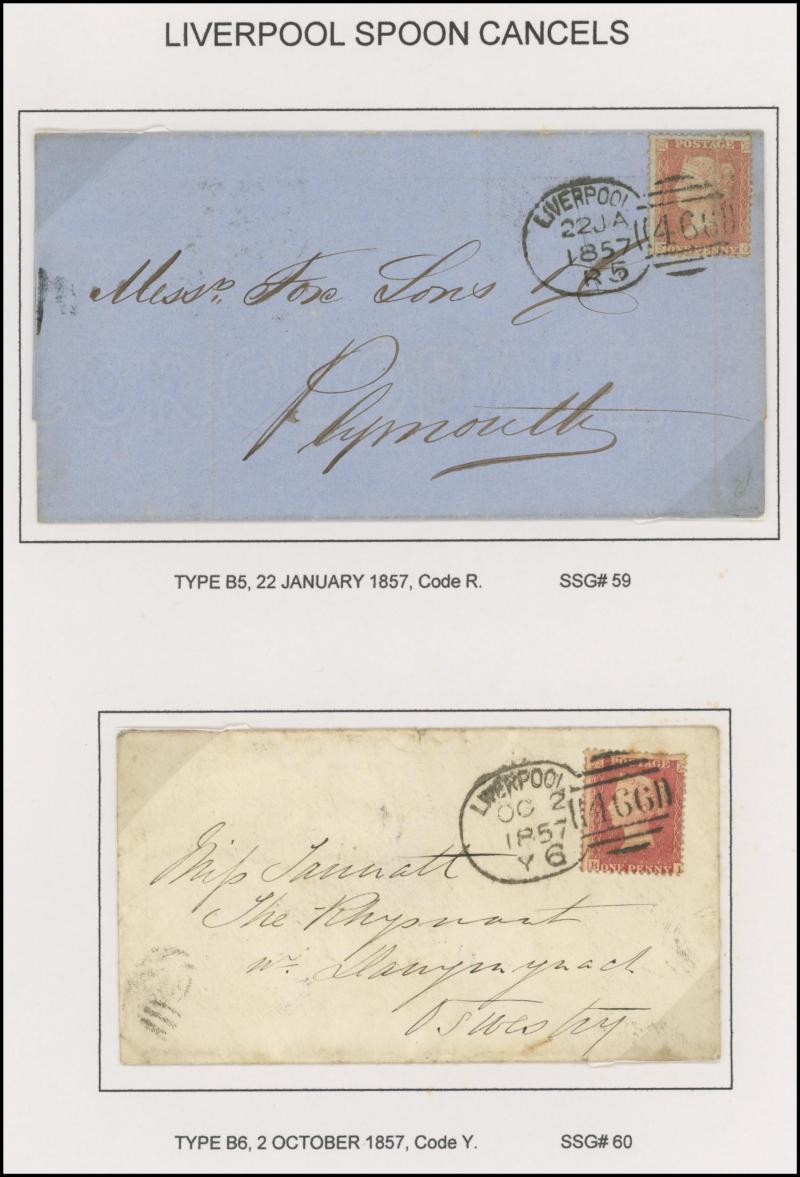 LIVERPOOL SPOON CANCELS
POSTAGE
LIVERPOOL
22 JA
1857
R 5
466
ONE PENNY
Messrs. Fox Sons & Co
Plymouth
TYPE B5, 22 JANUARY 1857, Code R. SSG# 59
POSTAGE
LIVERPOOL
OC 2
1857
Y 6
466
B ONE PENNY I
Miss Tannatt
The Rhysnant
nr. Llanymynach
Oswestry
TYPE B6, 2 OCTOBER 1857, Code Y. SSG# 60